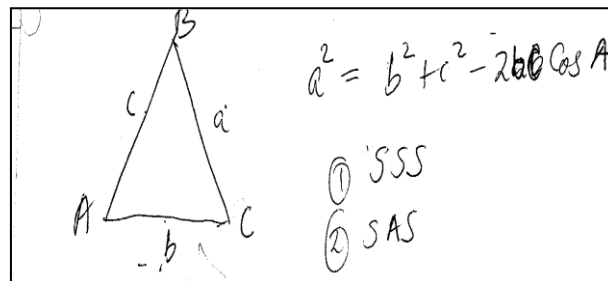 B
c
a
A
b
C
a² = b² + c² - 2 Cos A
① SSS
② SAS